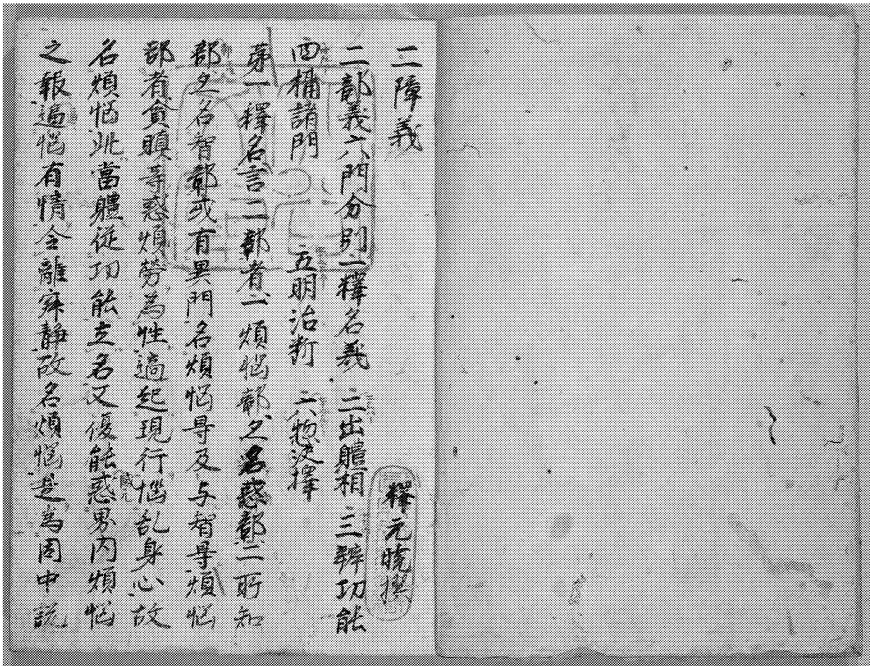 二障義
釋元曉撰
二鄣義六門分別一釋名義 二出軆相 三辨功能
四攝諸門 五明治斷 六惣決擇
第一釋名言二鄣者一煩惱鄣亦名惑鄣二所知
鄣亦名智鄣或有異門名煩惱㝵及与智㝵煩惱
鄣者貪瞋等惑煩勞為性適起現行惱乱身心故
名煩惱此當軆從功能立名又復能惑界內煩惱
之報逼惱有情令離寂靜故名煩惱是為因中說